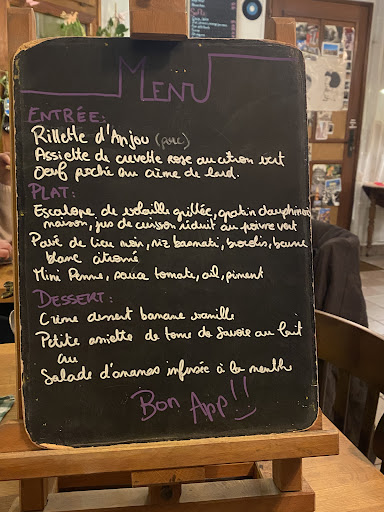 MENU
ENTRÉE:
Rillette d'Anjou (porc)
Assiette de crevette rose au citron vert
Oeuf poché au crème de lard.
PLAT:
Escalope de volaille grillée, gratin dauphinois
maison, jus de cuisson réduit au poivre vert
Pavé de lieu noir, riz basmati, brocolis, beurre
blanc citronné
Mini Penne, sauce tomate, ail, piment
DESSERT:
Crème dessert banane vanille
Petite assiette de tome de Savoie au lait
ou
Salade d'ananas infusée à la menthe
Bon App!!